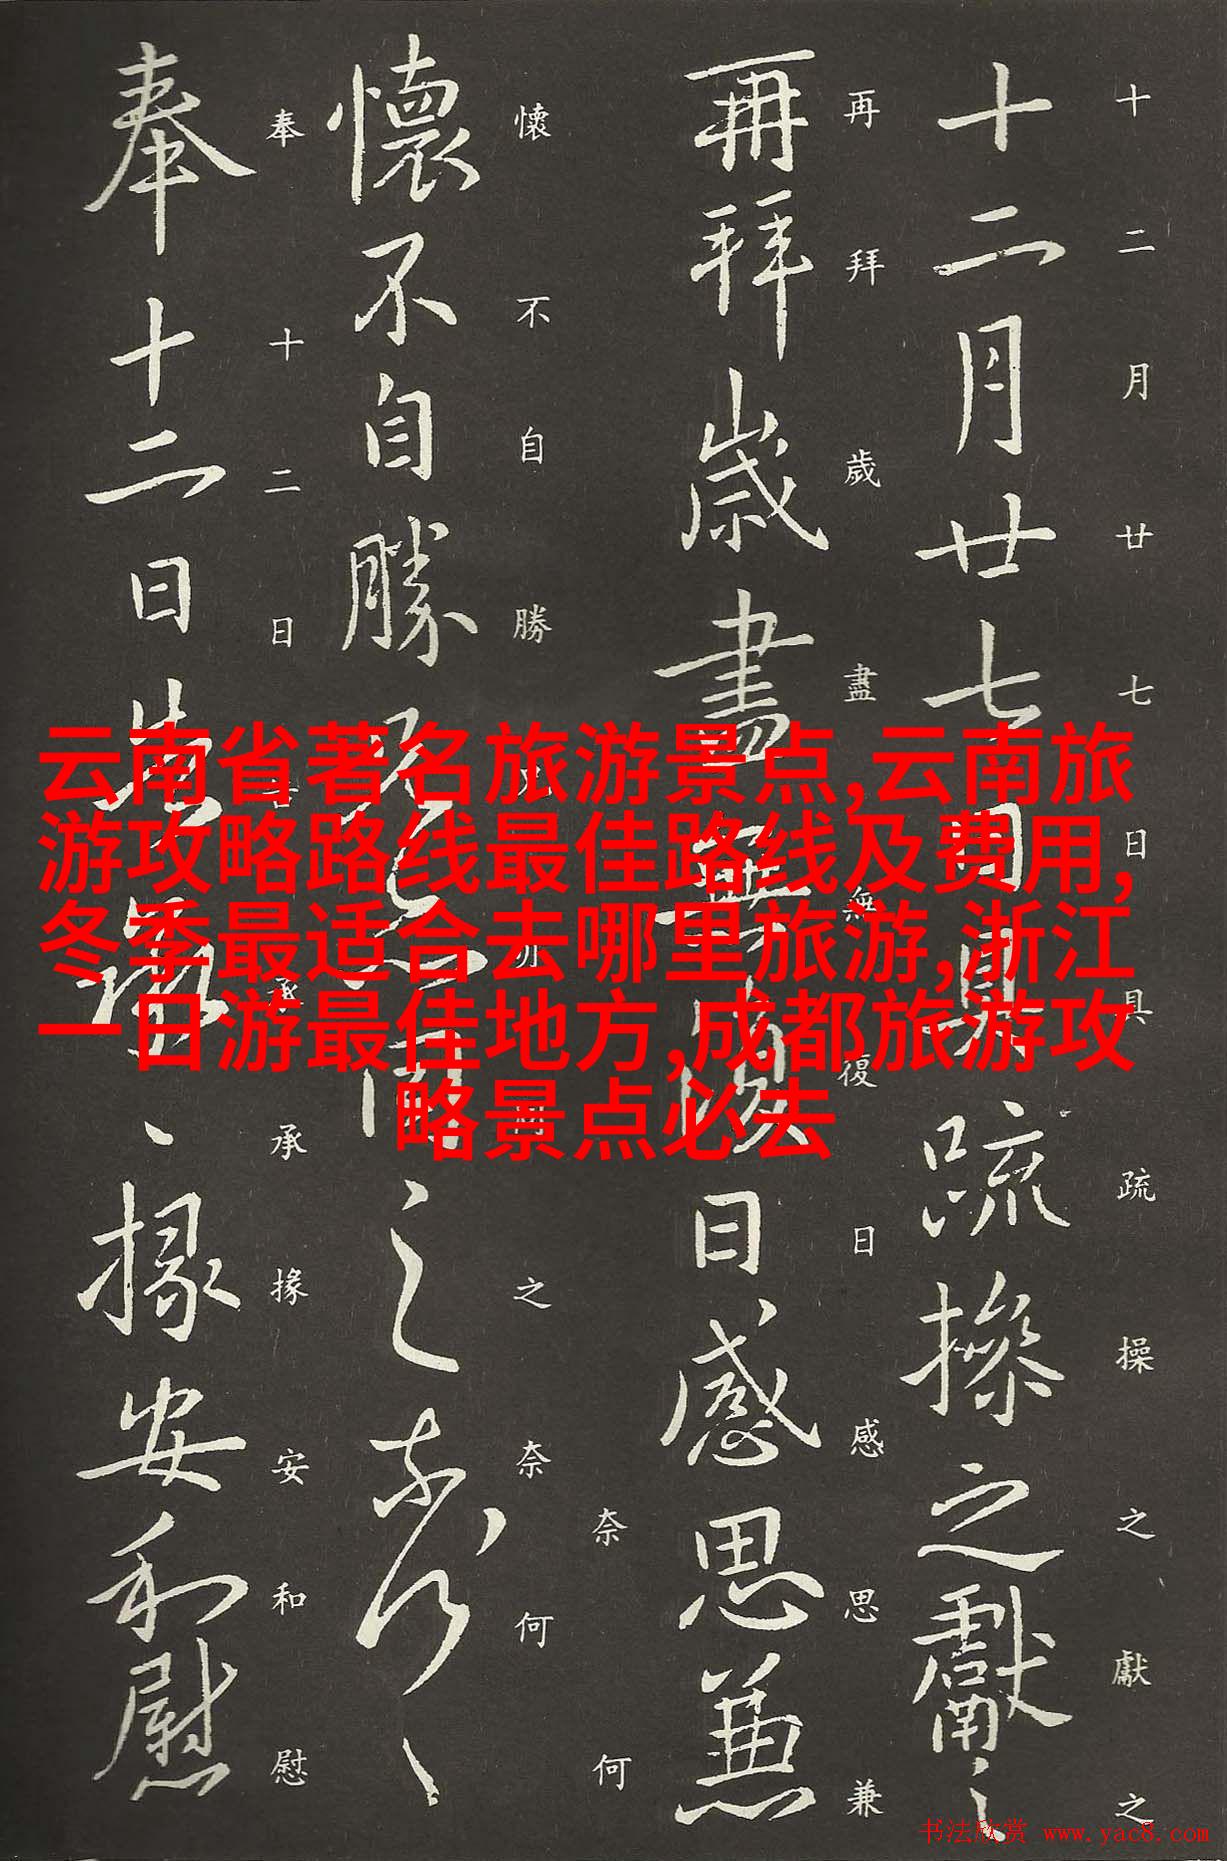 十二月廿七日具疏操之獻之
十二月廿七日具疏操之獻之
再拜歲盡無復日感思兼
再拜歲盡無復日感思兼
奈何
懷不自勝之奈何
懷不自勝之奈何
奉十二日承承掾安和慰
奉十二日掾安和慰
云南省著名旅游景点,云南旅
游攻略路线最佳路线及费用,
冬季最适合去哪里旅游,浙江
一日游最佳地方,成都旅游攻
略景点必去
书法欣赏 www.yac8.com